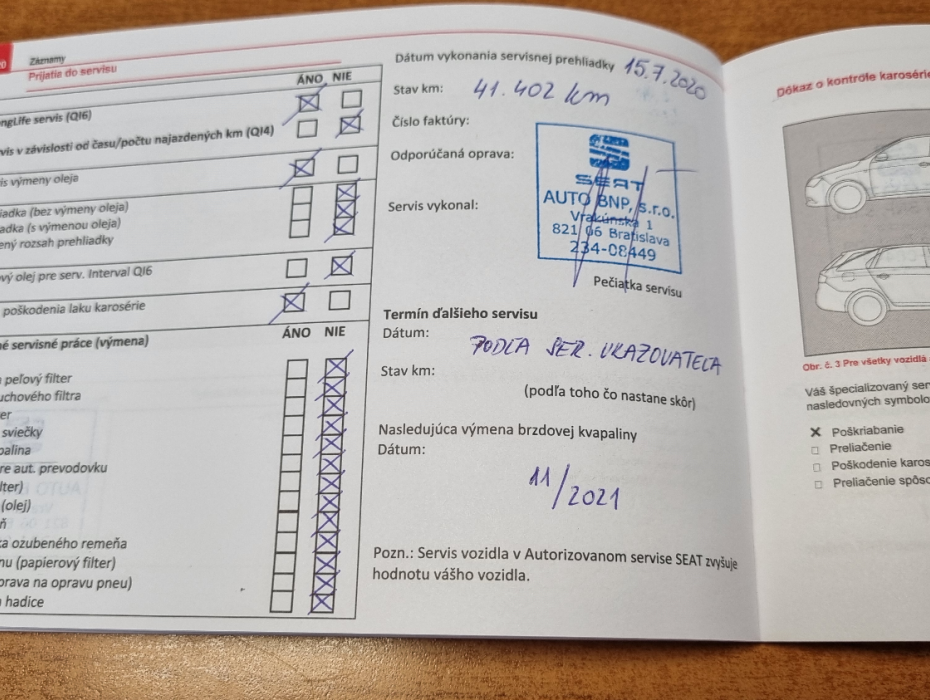 20
Záznamy
Prijatia do servisu
ÁNO NIE
ngLife servis (QI6)
vis v závislosti od času/počtu najazdených km (QI4)
is výmeny oleja
iadka (bez výmeny oleja)
adka (s výmenou oleja)
ený rozsah prehliadky
vý olej pre serv. Interval QI6
poškodenia laku karosérie
é servisné práce (výmena)
ÁNO NIE
peľový filter
uchového filtra
er
sviečky
palina
re aut. prevodovku
lter)
(olej)
ň
ka ozubeného remeňa
nu (papierový filter)
prava na opravu pneu)
hadice
Dátum vykonania servisnej prehliadky 15.7.2020
Stav km: 41.402 km
Číslo faktúry:
Odporúčaná oprava:
Servis vykonal:
SEAT
AUTO BNP, s.r.o.
Vrakúnska 1
821 06 Bratislava
234-08449
Pečiatka servisu
Termín ďalšieho servisu
Dátum: PODĽA SER. UKAZOVATEĽA
Stav km:
(podľa toho čo nastane skôr)
Nasledujúca výmena brzdovej kvapaliny
Dátum:
11/2021
Pozn.: Servis vozidla v Autorizovanom servise SEAT zvyšuje
hodnotu vášho vozidla.
Dôkaz o kontrole karosérie
Obr. č. 3 Pre všetky vozidlá
Váš špecializovaný ser
nasledovných symbolo
Poškriabanie
Preliačenie
Poškodenie karos
Preliačenie spôso